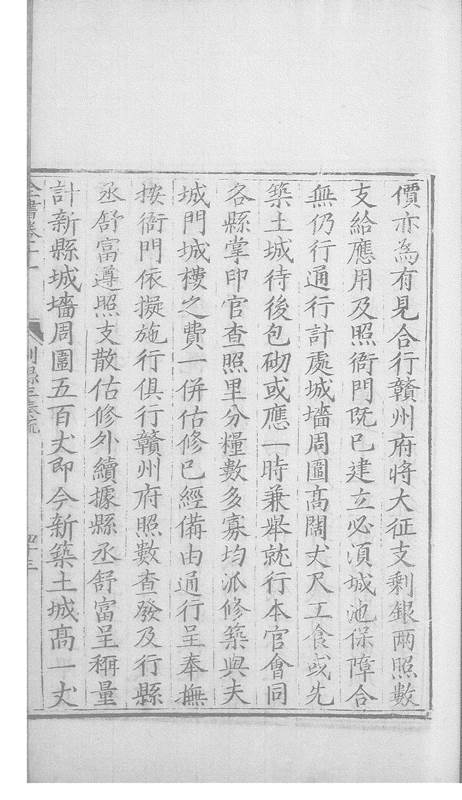 價亦為有見合行贛州府將大征支剩銀兩照數
支給應用及照衙門旣已建立必須城池保障合
無仍行通行計處城墻周圍髙闊丈尺工食或先
築土城待後包砌或應一時兼舉就行本官會同
各縣掌印官查照里分糧數多寡均派修築與夫
城門城樓之費一併估修已經備由通行呈奉撫
按衙門依擬施行俱行贛州府照數查發及行縣
丞舒富遵照支散估修外續據縣丞舒富呈稱量
計新縣城墻周圍五百丈即今新築土城髙一丈
全書卷十一 別錄三奏疏 四十三